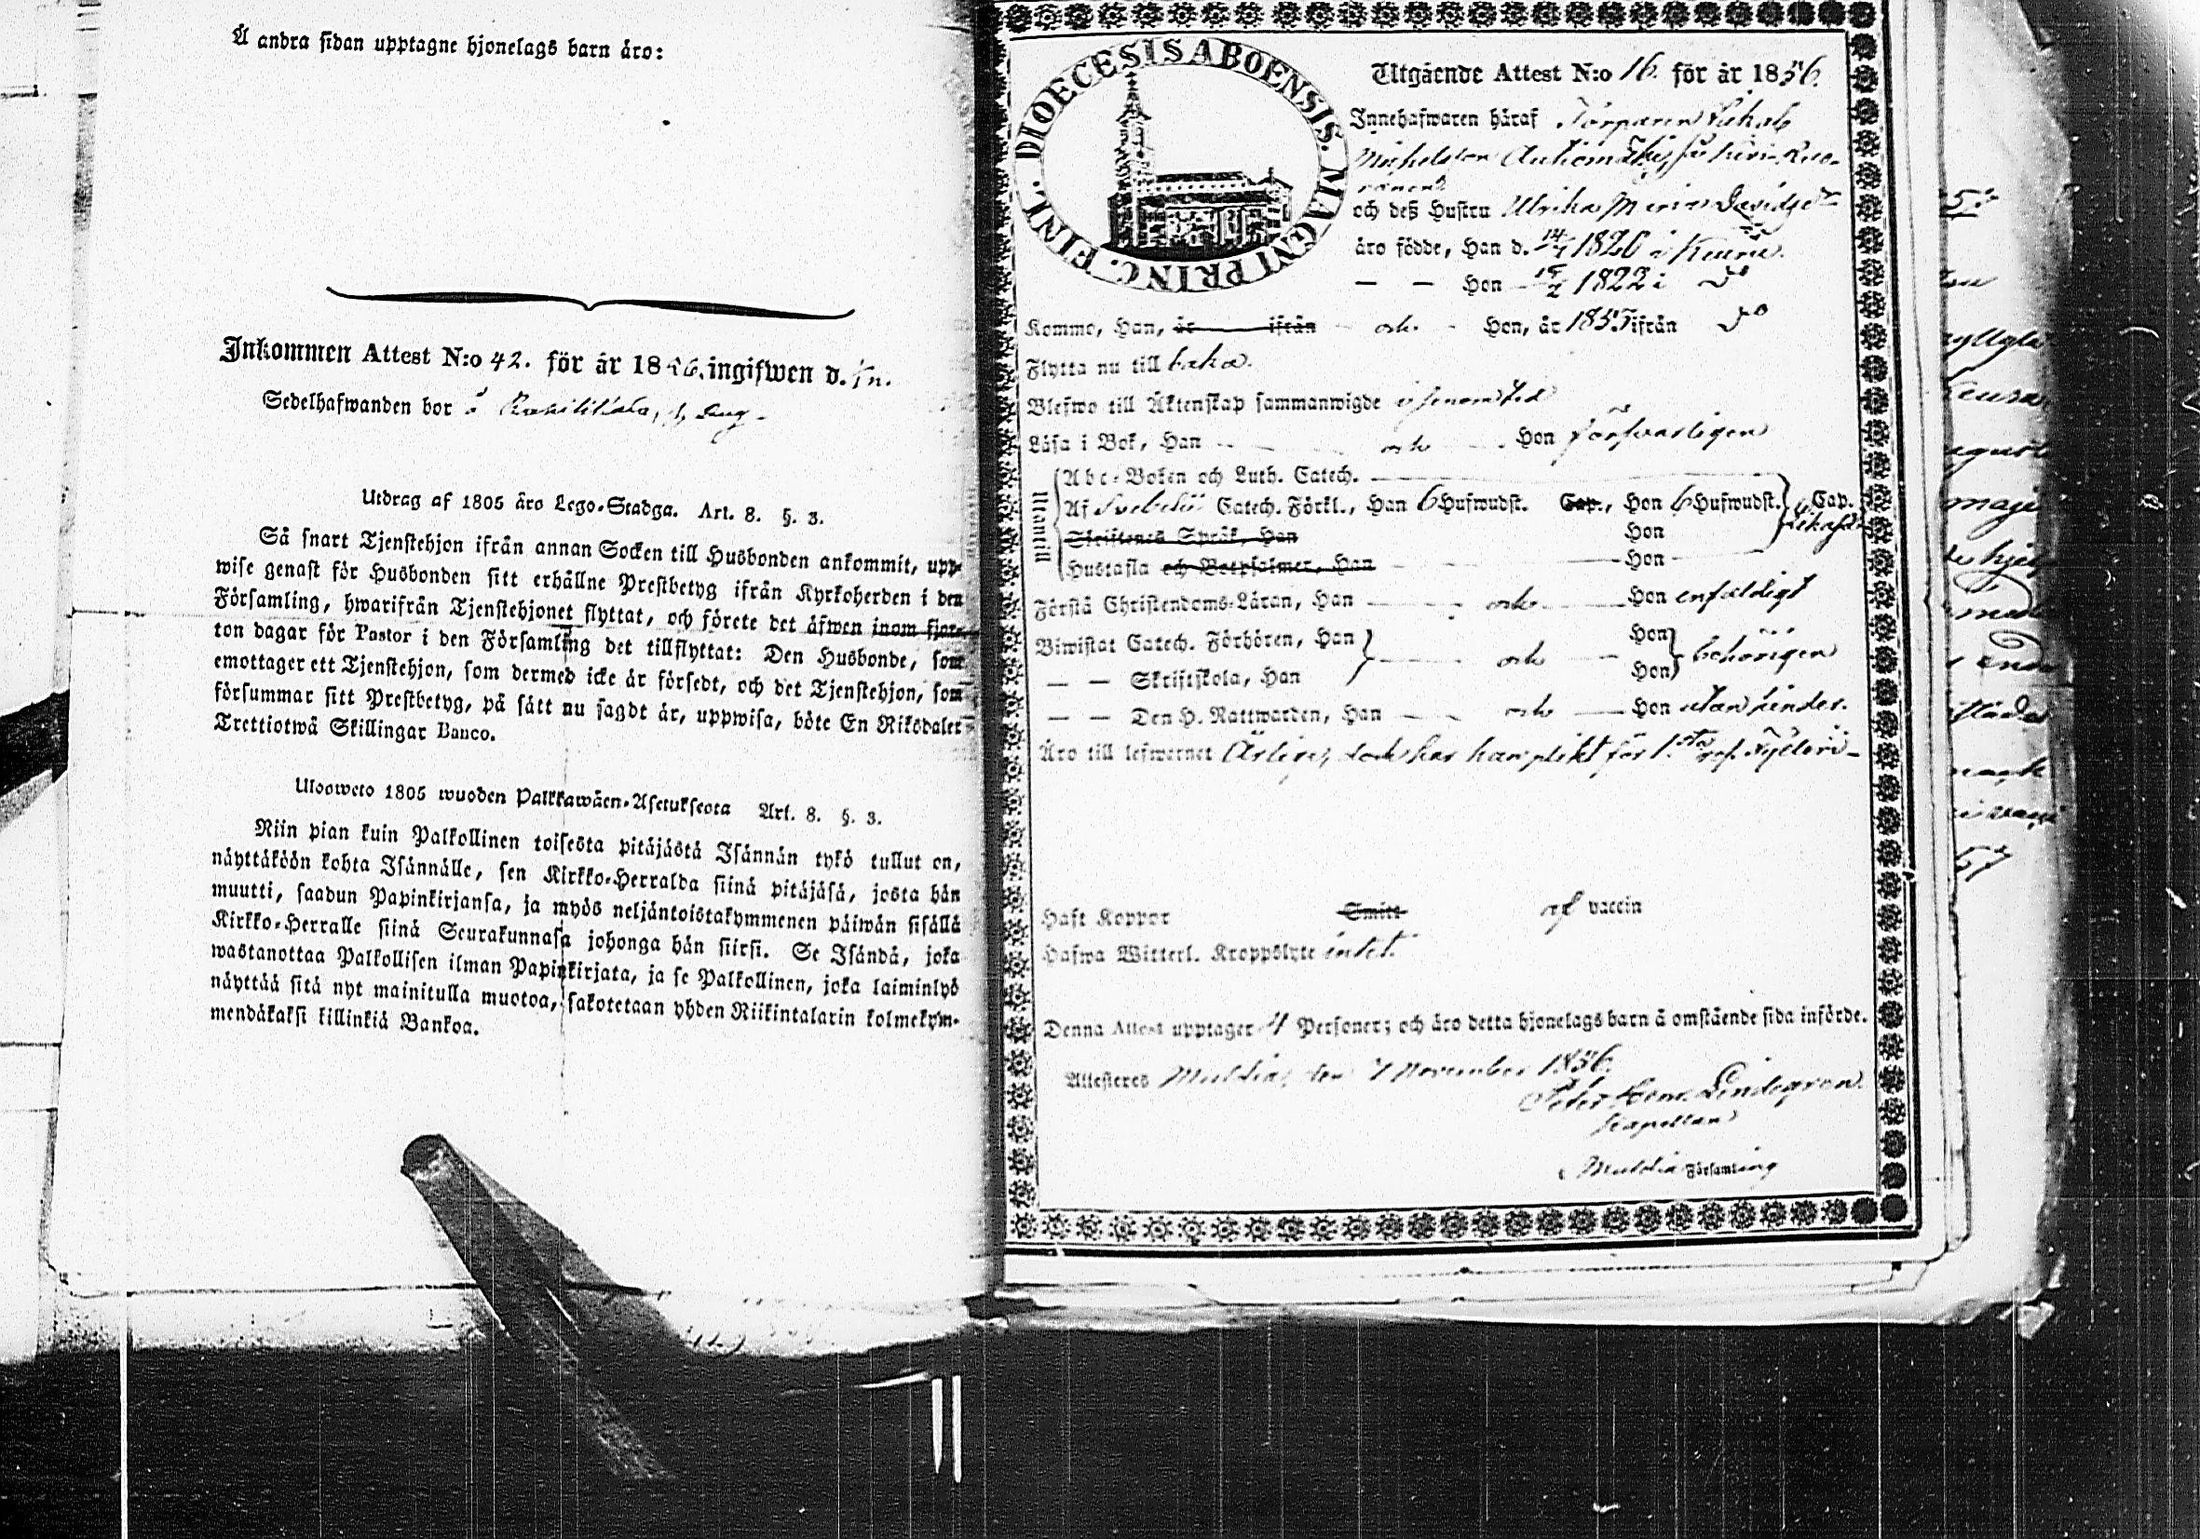 Å andra sidan upptagne hjonelags barn äro:
Inkommen Attest N:o 42. för år 1856. ingifwen d.
Sedelhafwanden bor å
Utdrag af 1805 års Lego-Stadga. Art. 8. §. 3.
Så snart Tjenstehjon ifrån annan Socken till Husbonden ankommit, upp-
wise genast för Husbonden sitt erhållne Prestbetyg ifrån Kyrkoherden i den
Församling, hwarifrån Tjenstehjonet flyttat, och förete det äfwen inom fjor-
ton dagar för Pastor i den Församling det tillflyttat: Den Husbonde, som
emottager ett Tjenstehjon, som dermed icke är försedt, och det Tjenstehjon, som
försummar sitt Prestbetyg, på sätt nu sagdt är, uppwisa, böte En Riksdaler
Trettiotwå Skillingar Banco.
Ulosweto 1805 wuoden Palkkawäen-Asetuksesta Art. 8. §. 3.
Niin pian kuin Palkollinen toisesta pitäjästä Isännän tykö tullut on,
näyttäköön kohta Isännälle, sen Kirkko-Herralda siinä pitäjäsä, josta hän
muutti, saadun Papinkirjansa, ja myös neljäntoistakymmenen päiwän sisällä
Kirkko-Herralle siinä Seurakunnasa johonga hän siirsi. Se Isändä, joka
wastanottaa Palkollisen ilman Papinkirjata, ja se Palkollinen, joka laiminlyö
näyttää sitä nyt mainitulla muotoa, sakotetaan yhden Riikintalarin kolmekym-
mendäkaksi killinkiä Bankoa.
DIOECESIS ABOENSIS. MAGNI PRINC. FINL.
Utgående Attest N:o 16. för år 1856.
Innehafwaren häraf Torparen
Michelsson
och deß Hustru Ulrika Maria Davidsdr
äro födde, Han d. 14/1 1820 i Keuru.
— — Hon 1822 i do
Komne, Han, år ifrån och Hon, år 1855 ifrån do
Flytta nu till baka.
Blefwo till Äktenskap sammanwigde
Läsa i Bok, Han och Hon försvarligen
Utantill
Abc-Boken och Luth. Catech.
Af Svebelii Catech. Förkl., Han 6 Hufwudst. Cap., Hon 6 Hufwudst. Cap.
Skriftenes Språk, Han Hon
Hustafla och Botpsalmer, Han Hon
Förstå Christendoms-Läran, Han och Hon enfaldigt
Biwistat Catech. Förhören, Han Hon
— — Skriftskola, Han och Hon behörigen
— — Den H. Nattwarden, Han och Hon utan hinder.
Äro till lefwernet Ärlige, dock har han plikt för 1:sta
Haft Koppor Smitt af vaccin
Hafwa Witterl. Kroppslyte intet.
Denna Attest upptager 4 Personer; och äro detta hjonelags barn å omstående sida införde.
Attesteres Multia, den 4 November 1856.
Peter Henr. Lindegren.
Kapellan
i Multia Församling